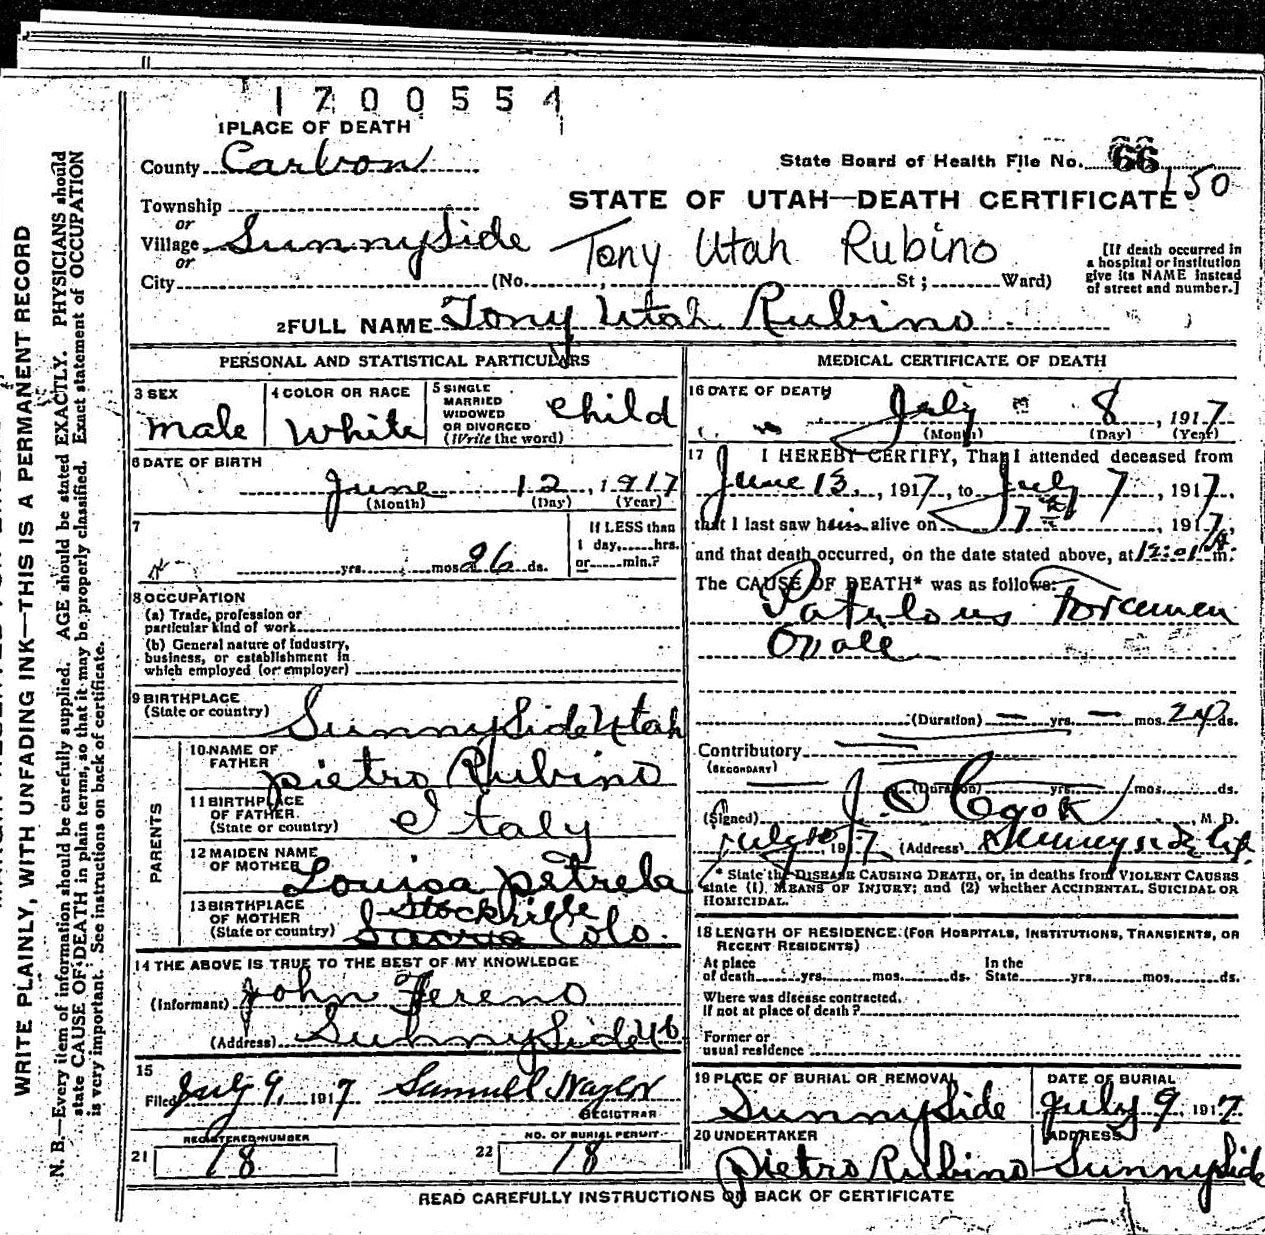 1700554
1 PLACE OF DEATH
County Carbon
State Board of Health File No. 66
150
Township
STATE OF UTAH—DEATH CERTIFICATE
or
Village SunnySide Tony Utah Rubino
or
City (No. St; Ward)
[If death occurred in
a hospital or institution
give its NAME instead
of street and number.]
2 FULL NAME Tony Utah Rubino
PERSONAL AND STATISTICAL PARTICULARS
3 SEX
male
4 COLOR OR RACE
White
5 SINGLE
MARRIED
WIDOWED
OR DIVORCED
(Write the word)
child
6 DATE OF BIRTH
June 12, 1917
(Month) (Day) (Year)
7
yrs. mos. 26 ds.
If LESS than
1 day, hrs.
or min.?
8 OCCUPATION
(a) Trade, profession or
particular kind of work
(b) General nature of Industry,
business, or establishment in
which employed (or employer)
9 BIRTHPLACE
(State or country) SunnySide Utah
PARENTS
10 NAME OF
FATHER pietro Rubino
11 BIRTHPLACE
OF FATHER
(State or country) Italy
12 MAIDEN NAME
OF MOTHER Louisa petrela
13 BIRTHPLACE
OF MOTHER
(State or country) Colo.
14 THE ABOVE IS TRUE TO THE BEST OF MY KNOWLEDGE
(Informant) John Fereno
(Address) SunnySide Ut
15
Filed July 9, 1917 Samuel Naylor
REGISTRAR
REGISTERED NUMBER
21 18
NO. OF BURIAL PERMIT
22 18
MEDICAL CERTIFICATE OF DEATH
16 DATE OF DEATH
July 8, 1917
(Month) (Day) (Year)
17 I HEREBY CERTIFY, That I attended deceased from
June 13, 1917, to July 7, 1917,
that I last saw him alive on 7, 1917,
and that death occurred, on the date stated above, at 12:01 A m.
The CAUSE OF DEATH* was as follows:
Patulous Foramen
Ovale
(Duration) — yrs. — mos. 24 ds.
Contributory
(SECONDARY)
(Duration) yrs. mos. ds.
(Signed) J. O Cook, M. D.
July 10, 1917 (Address) Sunnyside Ut.
* State the DISEASE CAUSING DEATH, or, in deaths from VIOLENT CAUSES
state (1) MEANS OF INJURY; and (2) whether ACCIDENTAL, SUICIDAL OR
HOMICIDAL.
18 LENGTH OF RESIDENCE (FOR HOSPITALS, INSTITUTIONS, TRANSIENTS, OR
RECENT RESIDENTS)
At place In the
of death yrs. mos. ds. State yrs. mos. ds.
Where was disease contracted,
If not at place of death?
Former or
usual residence
19 PLACE OF BURIAL OR REMOVAL
SunnySide
DATE OF BURIAL
July 9 1917
20 UNDERTAKER
pietro Rubino
ADDRESS
SunnySide
READ CAREFULLY INSTRUCTIONS ON BACK OF CERTIFICATE
WRITE PLAINLY, WITH UNFADING INK—THIS IS A PERMANENT RECORD
N. B.—Every item of information should be carefully supplied. AGE should be stated EXACTLY. PHYSICIANS should
state CAUSE OF DEATH in plain terms, so that it may be properly classified. Exact statement of OCCUPATION
is very important. See instructions on back of certificate.